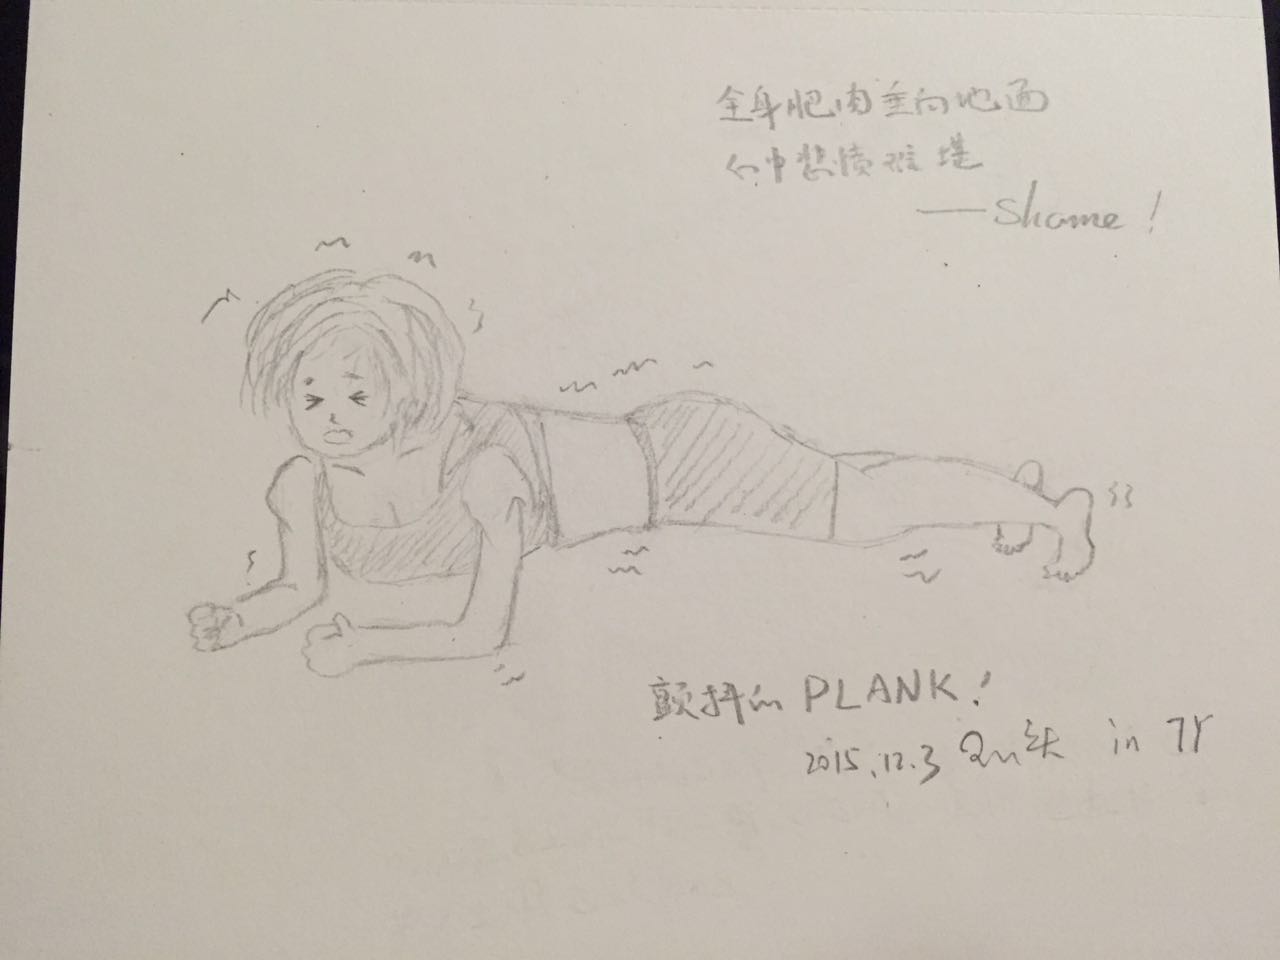 全身肥肉垂向地面
心中悲愤难堪
——Shame!
颤抖的 PLANK!
2015.12.3 in